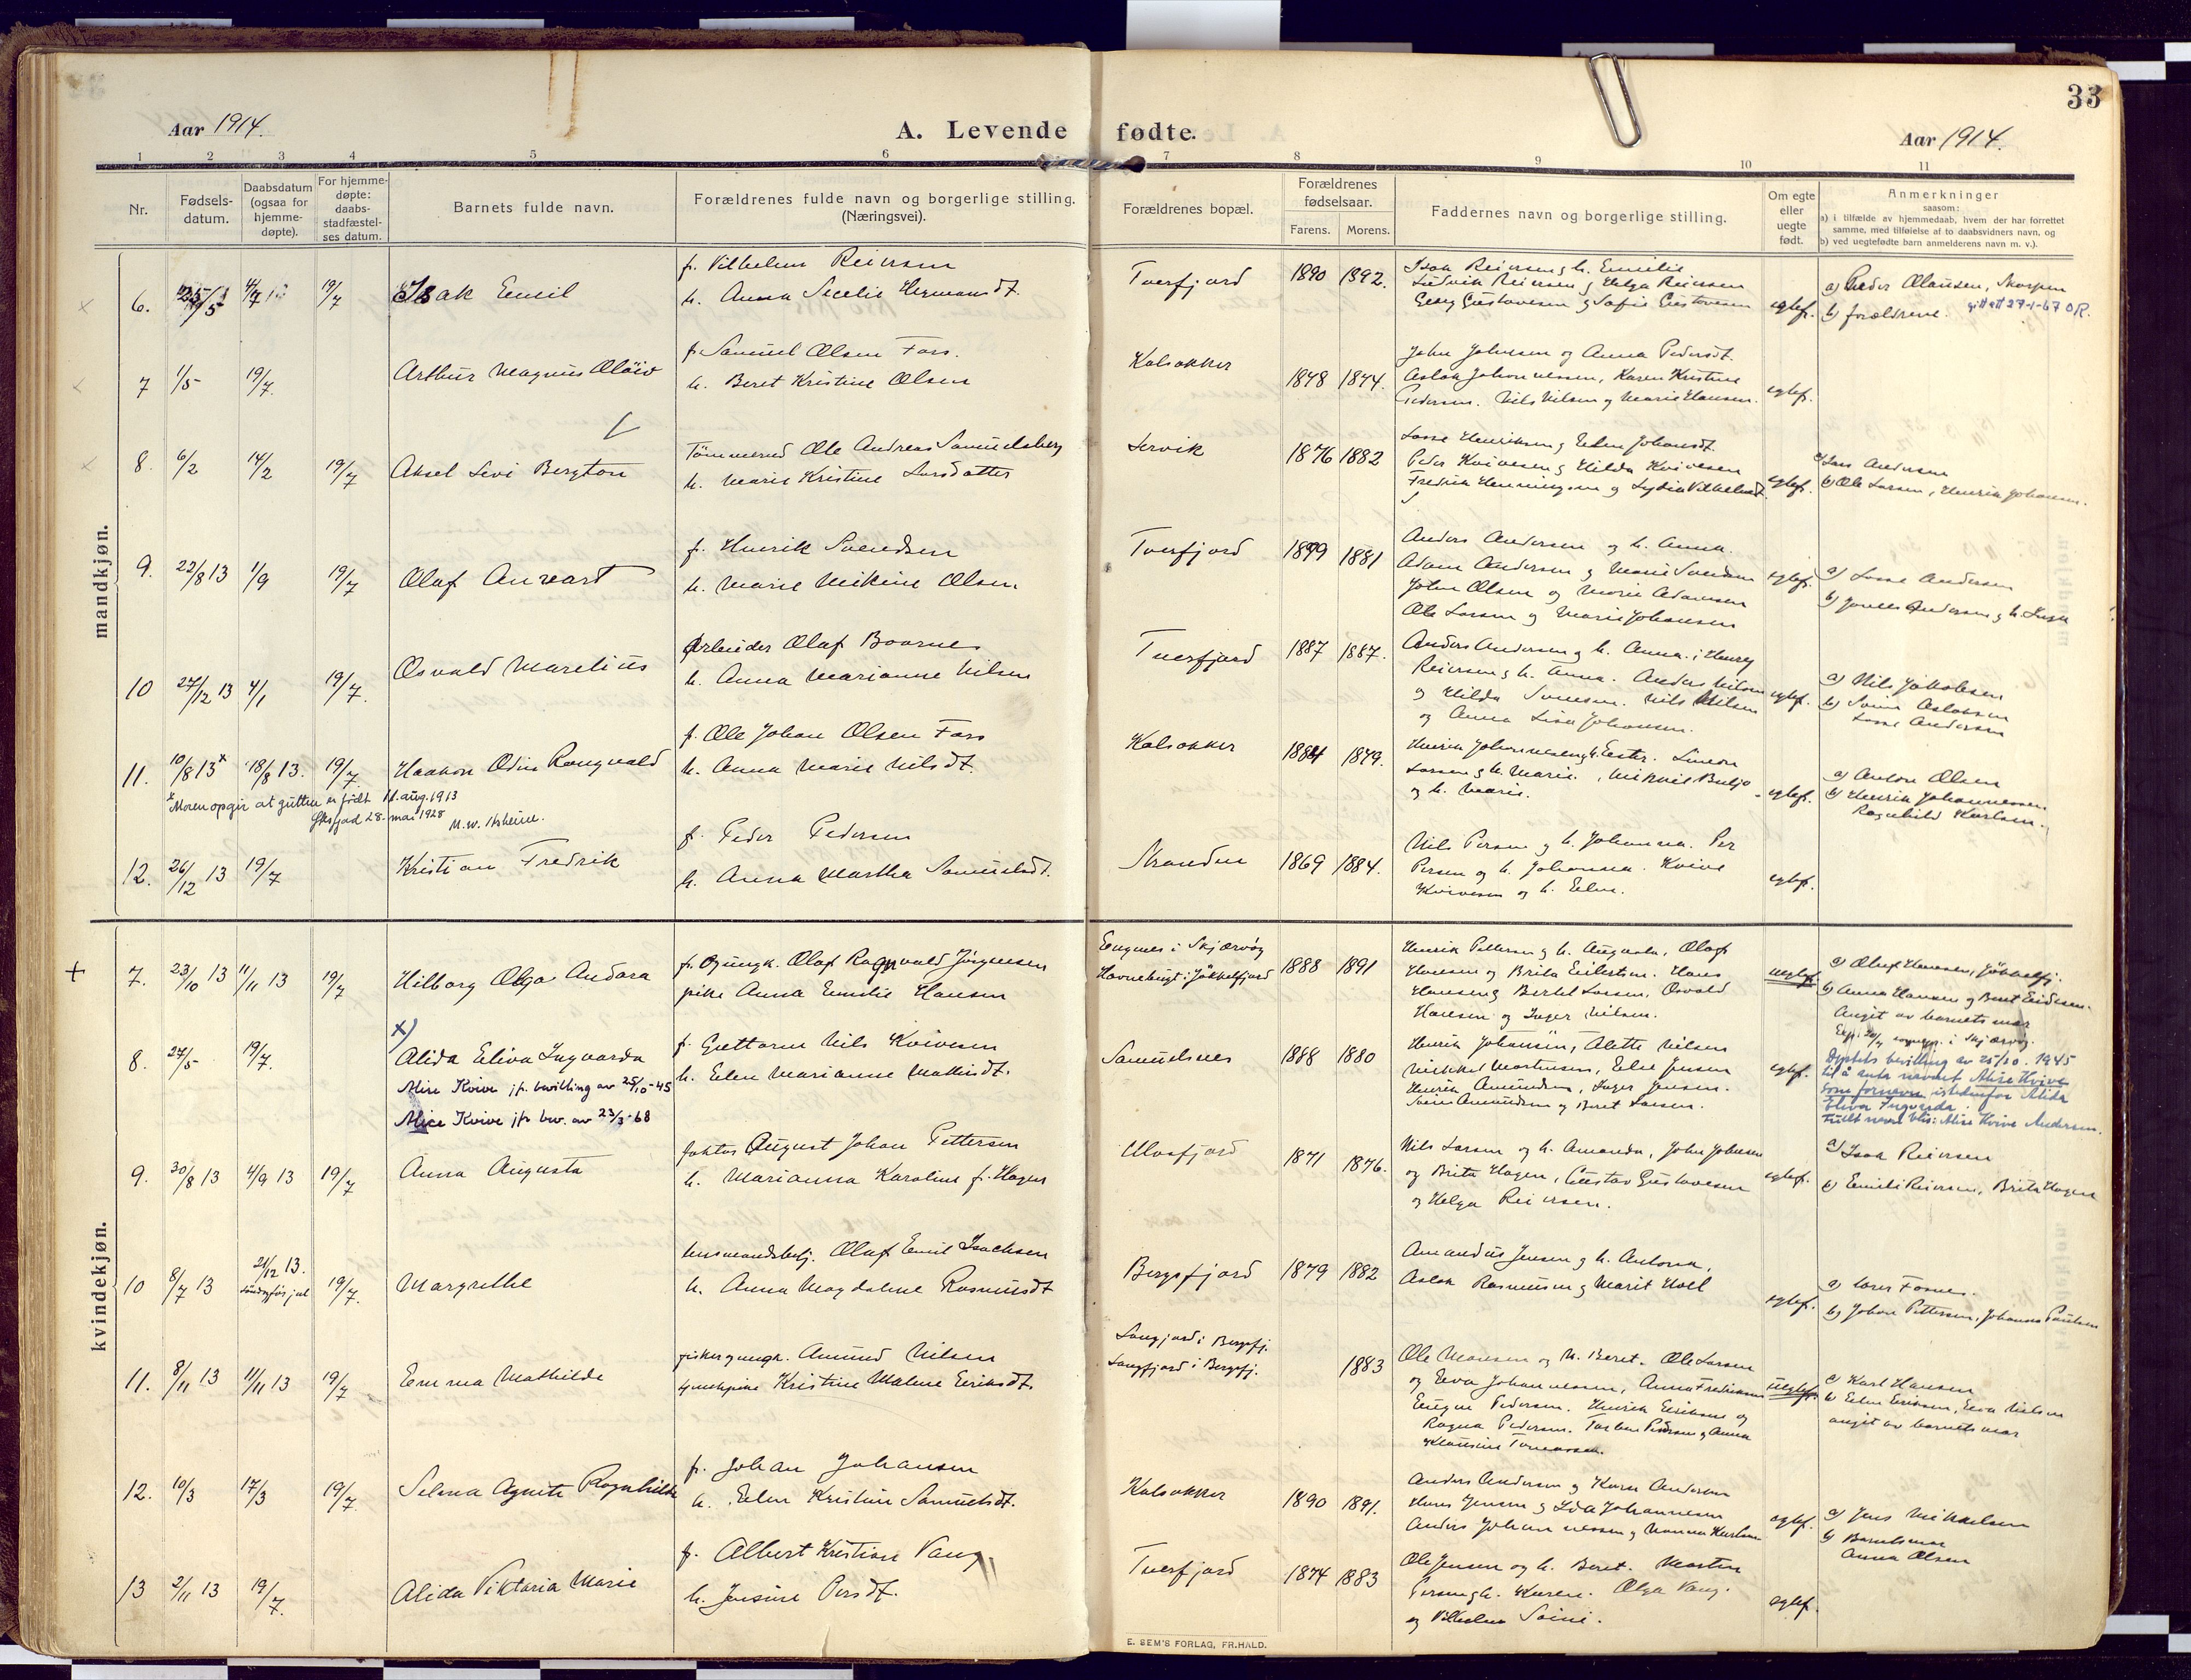 33
Aar 1914.
A. Levende fødte.
Aar 1914.
1 2 3 4 5 6 7 8 9 10 11
Nr.
Fødsels-
datum.
Daabsdatum
(ogsaa for
hjemme-
døpte).
For hjemme-
døpte:
daabs-
stadfæstel-
ses datum.
Barnets fulde navn.
Forældrenes fulde navn og borgerlige stilling.
(Næringsvei).
Forældrenes bopæl.
Forældrenes
fødselsaar.
Farens. Morens.
Faddernes navn og borgerlige stilling.
Om egte
eller
uegte
født.
Anmerkninger
saasom:
a) i tilfælde av hjemmedaab, hvem der har forrettet
samme, med tilføielse af to daabsvidners navn, og
b) ved uegtefødte barn anmelderens navn m. v.).
mandkjøn.
6. 19/7 Isak Emil
f. Vilhelm Reiersen
h. Anna Secelie Hermansdt.
Tverfjord 1890 1892.
Isak Reiersen g h. Emilie
Ludvik Reiersen g Helga Reiersen
Georg Gustavesen g Sofie Gustavesen
egtef.
a) Peder Olausen, Skorpen
b) forældrene. gitt att 27-1-67 OR.
7 1/5 19/7. Arthur Magnus Oløiv
f. Samuel Olsen Fors.
h. Beret Kristine Olsen
Kalsakker 1878 1874.
John Johnsen og Anna Pedersdt.
Aslak Johannessen, Karen Kristine
Pedersen. Nils Nilsen g Marie Hansen.
egtef.
8. 6/2 14/2 19/7 Aksel Levi Bergton
Tømmermd Ole Andreas Samuelsberg
h. Marie Kristine Larsdatter
Lervik 1876 1882
Lasse Henriksen g Elen Johansdt.
Peder Kvivesen g Hilda Kvivesen
Fredrik Henningsen g Lydia Vilhelmsdt
egtef.
a) Lars Andersen
b) Ole Larsen, Henrik Johansen.
9. 22/8 13 1/9 19/7 Olaf Anvart
f. Henrik Svendsen
h. Marie Mikine Olsen
Tverfjord 1879 1881
Anders Andersen og h. Anna.
Adam Andersen g Marie Svendsen
John Olsen og Marie Adamsen
Ole Larsen g Marie Johansen
egtef.
a) Lasse Andersen
b) Jonas Andersen g h. Inga
10 27/12 13 4/1 19/7. Osvald Marelius
Arbeider Olaf Boarnes
h. Anna Marianne Nilsen
Tverfjord 1887 1887.
Anders Andersen g h. Anna. Henrij
Reiersen g h. Anna. Anders Nilsen
og Hilda Svensen. Nils Nilsen
og Anna Lisa Johansen.
egtef.
a) Nils Jakobsen
b) Soine Aslaksen
Lasse Andersen
11. 10/8 13* 18/8 13. 19/7. Haakon Odin Rangvald
f. Ole Johan Olsen Fors
h. Anna Marie Nilsdt.
Kalsakker 1884 1879.
Henrik Johannessen g h. Ester. Simon
Larsen g h. Marie. Mikkel Buljo
og h. Marie.
egtef.
a) Anton Olsen
b) Henrik Johannessen
Ragnhild Karlsen.
* Moren opgir at gutten er født 11. aug. 1913
Øksfjord 28. mai 1928
12. 26/12 13 19/7 Kristian Fredrik
f. Peder Pedersen
h. Anna Martha Samuelsdt.
Stranden 1869 1884.
Nils Persen g h. Johanna. Per
Persen og h. Johanna. Kvive
Kvivesen og h. Elen.
egtef.
kvindekjøn.
+ 7. 23/10 13 11/11 13 19/7 Hilborg Olga Andora
f. og ungk. Olaf Ragnvald Jørgensen
pike Anna Emilie Hansen
Engnes i Skjærvøy
Havnebugt i Jøkkelfjord
1888 1891
Henrik Pettersen g h. Augusta, Olaf
Hansen og Brita Eilertsen. Hans
Hansen g Bertel Larsen, Osvald
Hansen og Inger Nilsen.
uegtef.
a) Oluf Hansen, Jøkkelfj.
b) Anna Hansen g Beret Eriksen.
Angit av barnets mor
8. 27/5 19/7.
x)
Alida Eliva Ingvarda
Alise Kvive jfr. bevilling av 25/10-45
Alice Kvive jfr bev. av 23/3-68
f. Guttorm Nils Kvivesen
h. Elen Marianne Mathisdt.
Samuelsnes 1888 1880
Henrik Johansen, Alette Nilsen
Mikkel Martinsen, Elen Jensen
Henrik Amundsen, Inger Jensen.
Soine Amundsen g Beret Larsen.
egtef.
Dpstets bevilling av 25/10. 1945
til å anta navnet Alise Kvive
som fornavn istedenfor Alida
Eliva Ingvarda.
Fullt navn blir: Alise Kvive Andersen.
9. 30/8 13 4/9 13 19/7 Anna Augusta
faktor August Johan Pettersen
h. Marianna Karoline f. Hagen
Ulvsfjord 1871 1876.
Nils Larsen og h. Amanda, John Johnsen
og Brita Hagen, Gustav Gustavesen
og Helga Reiersen.
egtef.
a) Isak Reiersen
b) Emilie Reiersen, Brita Hagen
10 8/7 13 21/12 13. 19/7. Margrethe
søndag før jul
husmandsbestj. Olaf Emil Isachsen
h. Anna Magdalene Rasmusdt
Bergsfjord 1879 1882
Amandus Jensen g h. Antona,
Aslak Rasmussen g Marit Hoel
egtef.
a) Lars Fosnes.
b) Johan Pettersen, Johanna Paulsen
11. 8/11 13 11/11 13 19/7 Emma Mathilde
fisker g ungk. Amund Nilsen
tjenestepike Kristine Malene Eriksdt.
Langfjord i Bergsfj.
Langfjord i Bergsfj.
1883
Ole Monsen og h. Beret. Ole Larsen
og Eeva Johannessen, Anna Fredriksen
Eugen Pedersen. Henrik Eriksen og
Ragna Pedersen. Torben Pedersen g Anna
Klausine Tomassen.
uegtef.
a) Karl Hansen
b) Elen Eriksen, Eeva Nilsen
angit av barnets mor
12. 10/3 17/3 19/7. Selma Agnete Ragnhilde
f. Johan Johansen
h. Elen Kristine Samuelsdt.
Kalsakker 1890 1891.
Anders Andersen g Karen Andersen
Hans Jensen g Ida Johannesen
Anders Johannessen g Hanna Karlsen
egtef.
a) Jens Mikkelsen
b) Barnets mor
Anna Olsen
13 2/11 13 19/7. Alida Viktoria Marie
f. Albert Kristian Vang
h. Jensine Persdt.
Tverfjord 1874 1883
Ole Jensen og h. Beret. Morten
Persen g h. Karen. Olga Vang.
og Vilhelm Soini.
egtef.
E. SEM'S FORLAG, FR.HALD.